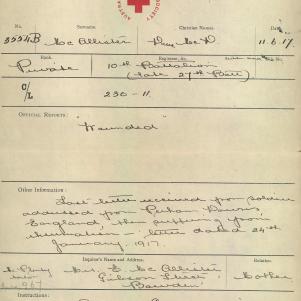 No. Surname Christian Names. Date
3554B McAllister 11.6.17.
Rank. Regiment, &c.
Private 10th Battalion
(late 27th Batt)
C/L 230-11.
OFFICIAL REPORTS:
"Wounded"
Other Information:
Last letter received from soldier
addressed from Perham Downs,
England, then suffering from
rheumatism - letter dated 24th
January, 1917.
Inquirer's Name and Address. Relation
Mrs. E. McAllister Mother
Gibson Street
Bowden
Instructions: